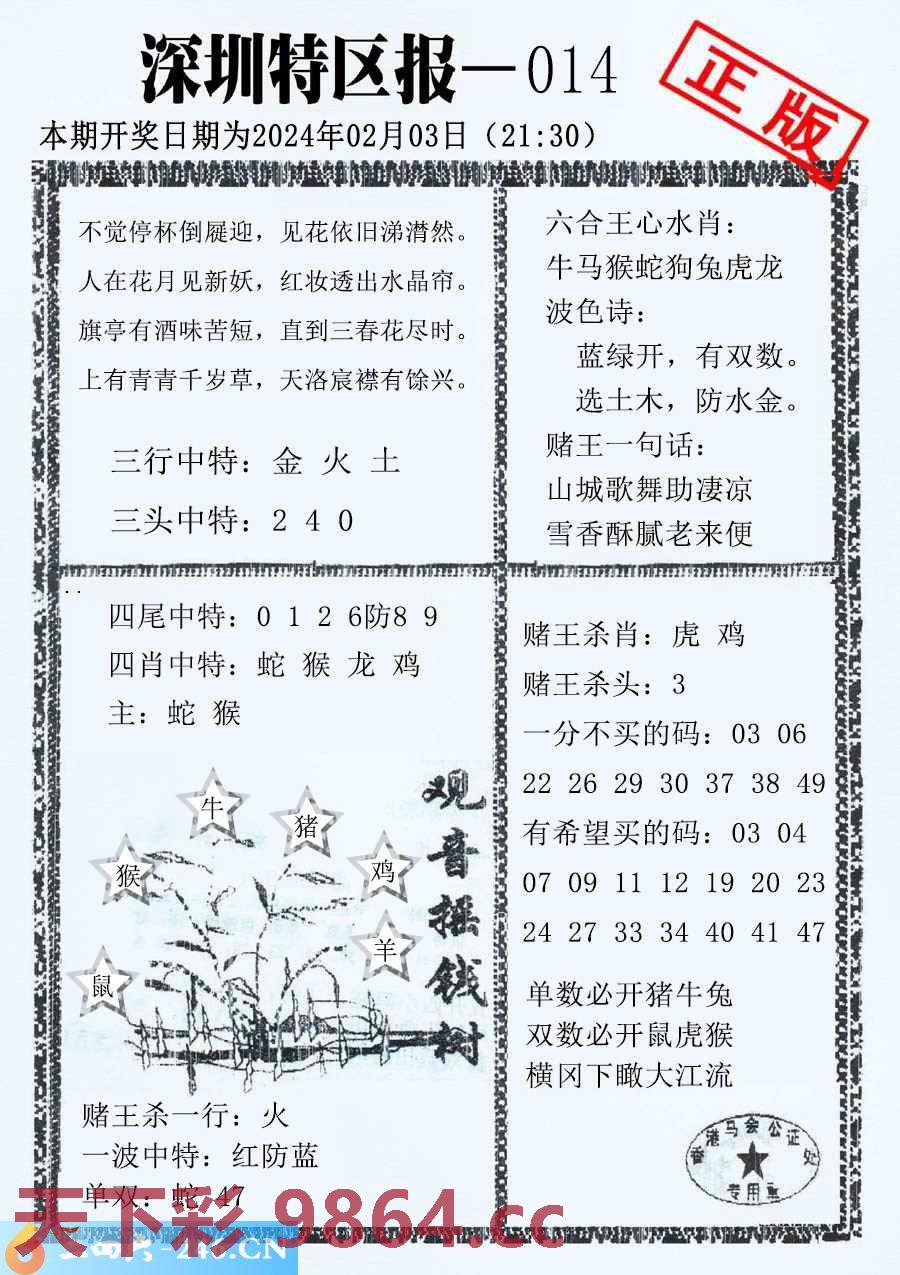 深圳特区报—014
正版
本期开奖日期为2024年02月03日（21:30）
不觉停杯倒屣迎，见花依旧涕潸然。
人在花月见新妖，红妆透出水晶帘。
旗亭有酒味苦短，直到三春花尽时。
上有青青千岁草，天洛宸襟有馀兴。
三行中特：金 火 土
三头中特：2 4 0
六合王心水肖：
牛马猴蛇狗兔虎龙
波色诗：
蓝绿开，有双数。
选土木，防水金。
赌王一句话：
山城歌舞助凄凉
雪香酥腻老来便
四尾中特：0 1 2 6防8 9
四肖中特：蛇 猴 龙 鸡
主：蛇 猴
牛
猪
猴
鸡
羊
鼠
观音摇钱树
赌王杀一行：火
一波中特：红防蓝
单双：蛇 47
赌王杀肖：虎 鸡
赌王杀头：3
一分不买的码：03 06
22 26 29 30 37 38 49
有希望买的码：03 04
07 09 11 12 19 20 23
24 27 33 34 40 41 47
单数必开猪牛兔
双数必开鼠虎猴
横冈下瞰大江流
香港马会公证处
专用章
天下彩.9864.cc
-246.CN